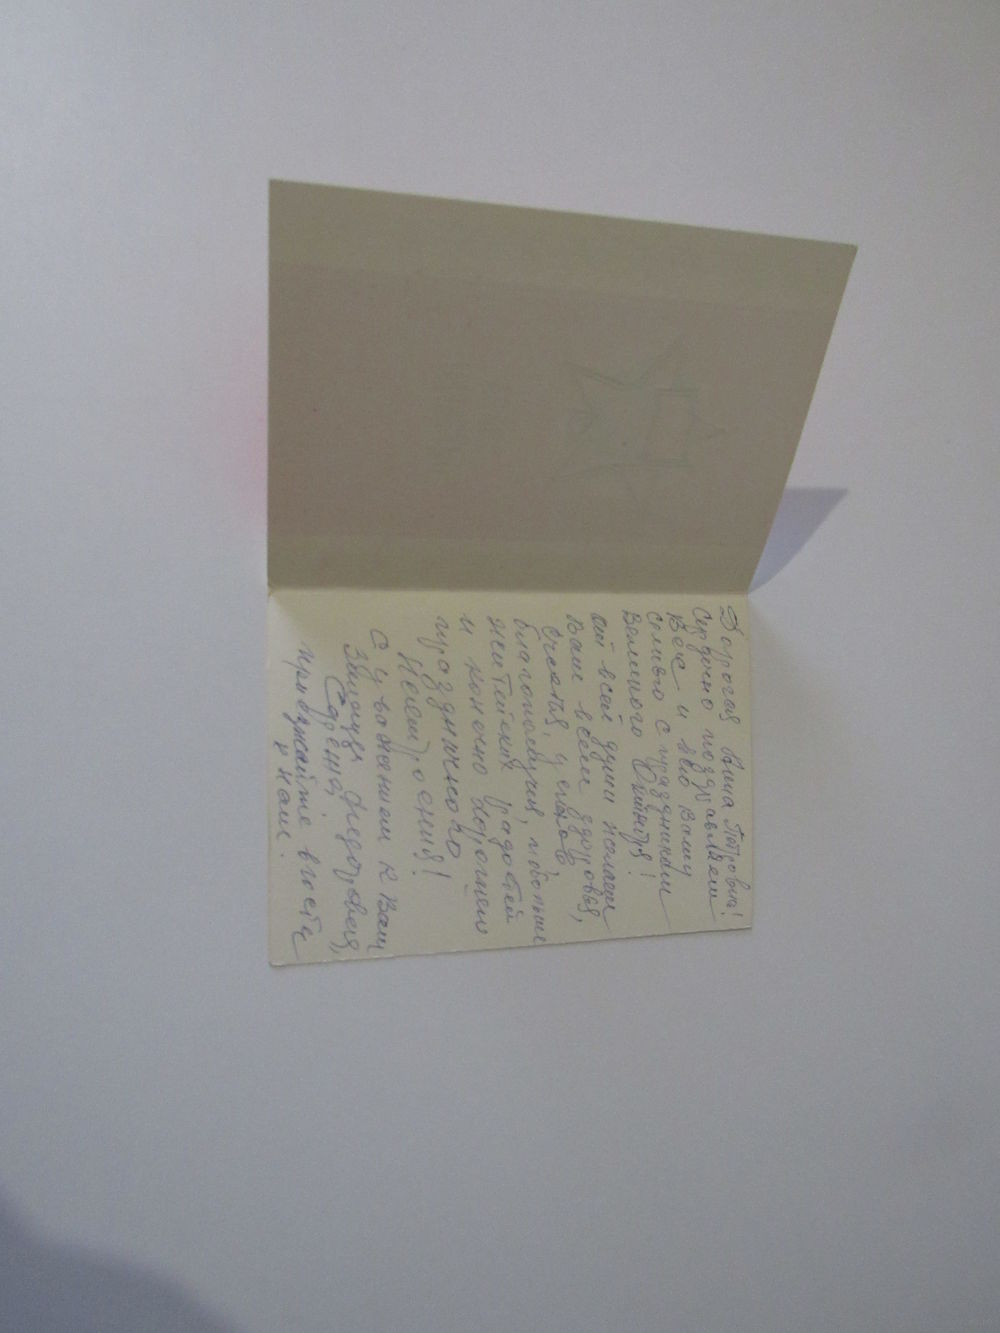 Дорогая Анна Петровна!
Сердечно поздравляем
Вас и всю Вашу
семью с праздником
Великого Октября!
От всей души желаем
Вам всем здоровья,
счастья, успехов,
благополучия, побольше
житейских радостей
и конечно хорошего
праздничного
настроения!
С уважением к Вам
Федоровна,
Сережа,
приезжайте в гости
к нам.